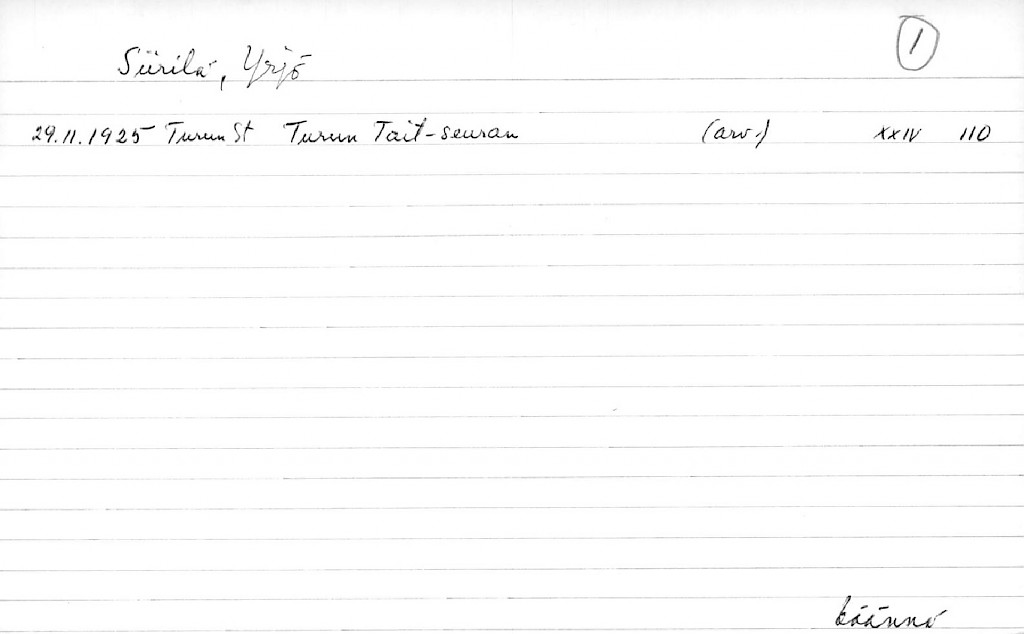 Siirilä, Yrjö 1
29.11.1925 Turun St Turun Tait-seuran (arv.) XXIV 110
käännä